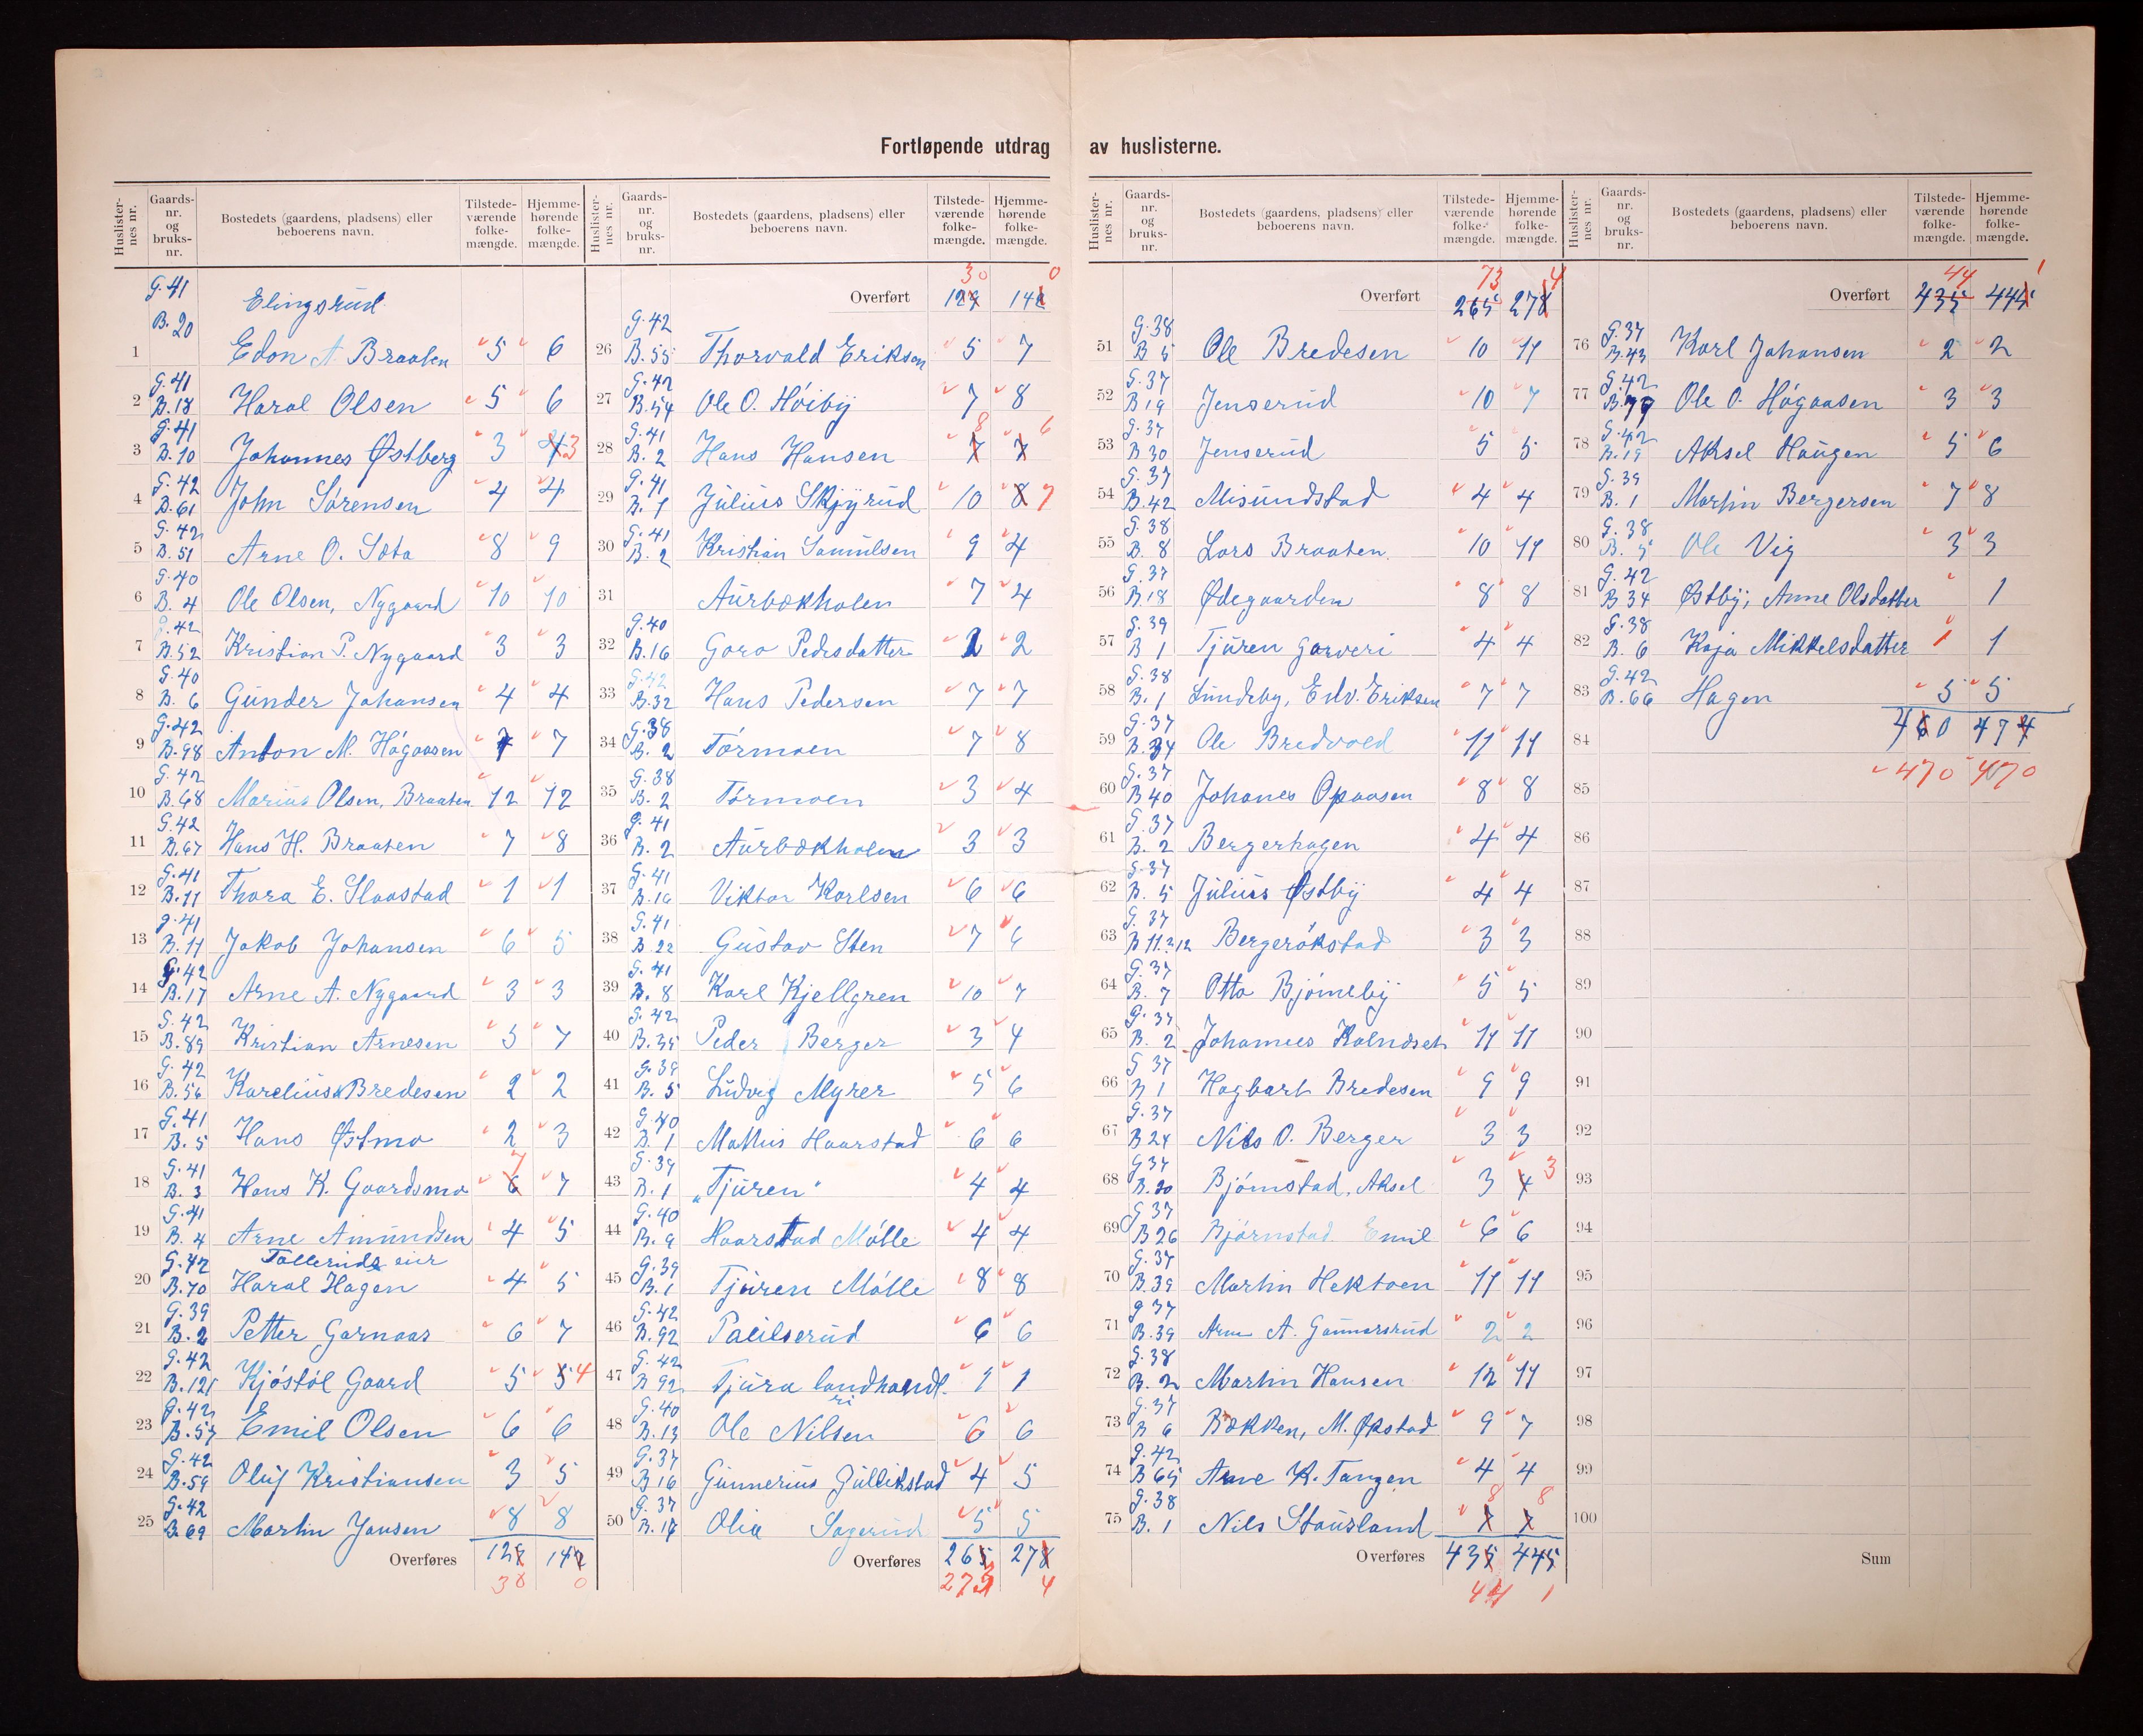 Fortløpende utdrag av huslisternе.
Huslisternes nr. Gaards-nr. og bruks-nr. Bostedets (gaardens, pladsens) eller beboerens navn. Tilstede-værende folke-mængde. Hjemme-hørende folke-mængde.
G. 41 B. 20 Elingsrud
1 Edon A Braaten 5 6
2 G. 41 B. 18 Haral Olsen 5 6
3 G. 41 B. 10 Johannes Østberg 3 4 3
4 G. 42 B. 61 John Sørensen 4 4
5 G. 42 B. 51 Arne O. Sæta 8 9
6 G. 40 B. 4 Ole Olsen, Nygaard 10 10
7 G. 42 B. 52 Kristian P. Nygaard 3 3
8 G. 40 B. 6 Gunder Johansen 4 4
9 G. 42 B. 98 Anton M. Høgaasen 7 7
10 G. 42 B. 68 Marius Olsen, Braaten 12 12
11 G. 42 B. 67 Hans H. Braaten 7 8
12 G. 41 B. 11 Thora E. Slaastad 1 1
13 G. 41 B. 11 Jakob Johansen 6 5
14 G. 42 B. 17 Arne A. Nygaard 3 3
15 G. 42 B. 89 Kristian Arnesen 5 7
16 G. 42 B. 56 Karelius Bredesen 2 2
17 G. 41 B. 5 Hans Østmo 2 3
18 G. 41 B. 3 Hans K. Gaardsmo 6 7 7
19 G. 41 B. 4 Arne Amundsen 4 5
Tollerude eier
20 G. 42 B. 70 Haral Hagen 4 5
21 G. 39 B. 2 Petter Garnaas 6 7
22 G. 42 B. 121 Kjøstøl Gaard 5 5 4
23 G. 42 B. 57 Emil Olsen 6 6
24 G. 42 B. 59 Oluf Kristiansen 3 5
25 G. 42 B. 69 Martin Jansen 8 8
Overføres 129 142
30 0
Huslisternes nr. Gaards-nr. og bruks-nr. Bostedets (gaardens, pladsens) eller beboerens navn. Tilstede-værende folke-mængde. Hjemme-hørende folke-mængde.
30 0
Overført 129 142
26 G. 42 B. 55 Thorvald Eriksen 5 7
27 G. 42 B. 54 Ole O. Høiby 7 8
28 G. 41 B. 2 Hans Hansen 7 8 7 6
29 G. 41 B. 1 Julius Skjyrud 10 8 7
30 G. 41 B. 2 Kristian Samulsen 9 4
31 Aurbækholen 7 4
32 G. 40 B. 16 Goro Pedersdatter 2 2
33 G. 42 B. 32 Hans Pedersen 7 7
34 G. 38 B. 2 Tørmoen 7 8
35 G. 38 B. 2 Tørmoen 3 4
36 G. 41 B. 2 Aurbækholen 3 3
37 G. 41 B. 16 Viktor Karlsen 6 6
38 G. 41 B. 22 Gustav Sten 7 6
39 G. 41 B. 8 Karl Kjellgren 10 7
40 G. 42 B. 35 Peder Berger 3 4
41 G. 39 B. 5 Ludvig Myrer 5 6
42 G. 40 B. 1 Mathis Haarstad 6 6
43 G. 39 B. 1 „Tjuren" 4 4
44 G. 40 B. 9 Haarstad Mølle 4 4
45 G. 39 B. 1 Tjuren Mølle 8 8
46 G. 42 B. 92 Paulserud 6 6
47 G. 42 B. 92 Tjura landhandleri 1 1
48 G. 40 B. 13 Ole Nilsen 6 6
49 G. 37 B. 16 Gunnerius Gullikstad 4 5
50 G. 37 B. 17 Olia Sagerud 5 5
Overføres 265 278
273 4
Huslisternes nr. Gaards-nr. og bruks-nr. Bostedets (gaardens, pladsens) eller beboerens navn. Tilstede-værende folke-mængde. Hjemme-hørende folke-mængde.
73 4
Overført 265 278
51 G. 38 B 5 Ole Bredesen 10 11
52 G. 37 B 19 Jenserud 10 7
53 G. 37 B 30 Jenserud 5 5
54 G. 37 B. 42 Misundstad 4 4
55 G. 38 B. 8 Lars Braaten 10 11
56 G. 37 B. 18 Ødegaarden 8 8
57 G. 39 B 1 Tjuren garveri 4 4
58 G. 38 B. 1 Lundeby, Edv. Eriksen 7 7
59 G. 37 B. 34 Ole Bredvold 11 11
60 G. 37 B 40 Johanes Opaasen 8 8
61 G. 37 B. 2 Bergerhagen 4 4
62 G. 37 B. 5 Julius Østby 4 4
63 G. 37 B 11. 2 12 Bergerøkstad 3 3
64 G. 37 B. 7 Otto Bjørneby 5 5
65 G. 37 B. 2 Johannes Kalnæset 11 11
66 G 37 B 1 Hagbart Bredesen 9 9
67 G. 37 B 24 Nils O. Berger 3 3
68 G 37 B. 20 Bjørnstad, Aksel 3 4 3
69 G 37 B 26 Bjørnstad Emil 6 6
70 G. 37 B. 39 Martin Hektoen 11 11
71 G 37 B. 39 Arne A. Gunnarsrud 2 2
72 G. 38 B. 2 Martin Hansen 12 11
73 G. 37 B 6 Bækken, M. Økstad 9 7
74 G. 42 B 65 Arne K. Tangen 4 4
75 G. 38 B. 1 Nils Stausland 7 8 7 8
Overføres 435 445
44 1
Huslisternes nr. Gaards-nr. og bruks-nr. Bostedets (gaardens, pladsens) eller beboerens navn. Tilstede-værende folke-mængde. Hjemme-hørende folke-mængde.
44 1
Overført 435 445
76 G. 37 B. 43 Karl Johansen 2 2
77 G. 42 B. 77 Ole O. Høgaasen 3 3
78 G. 42 B. 19 Aksel Haugen 5 6
79 G. 39 B. 1 Martin Bergersen 7 8
80 G. 38 B. 5 Ole Vig 3 3
81 G. 42 B 34 Østby, Anne Olsdatter 1
82 G. 38 B. 6 Kaja Mikkelsdatter 1 1
83 G. 42 B. 66 Hagen 5 5
84 460 474
470 470
85
86
87
88
89
90
91
92
93
94
95
96
97
98
99
100
Sum